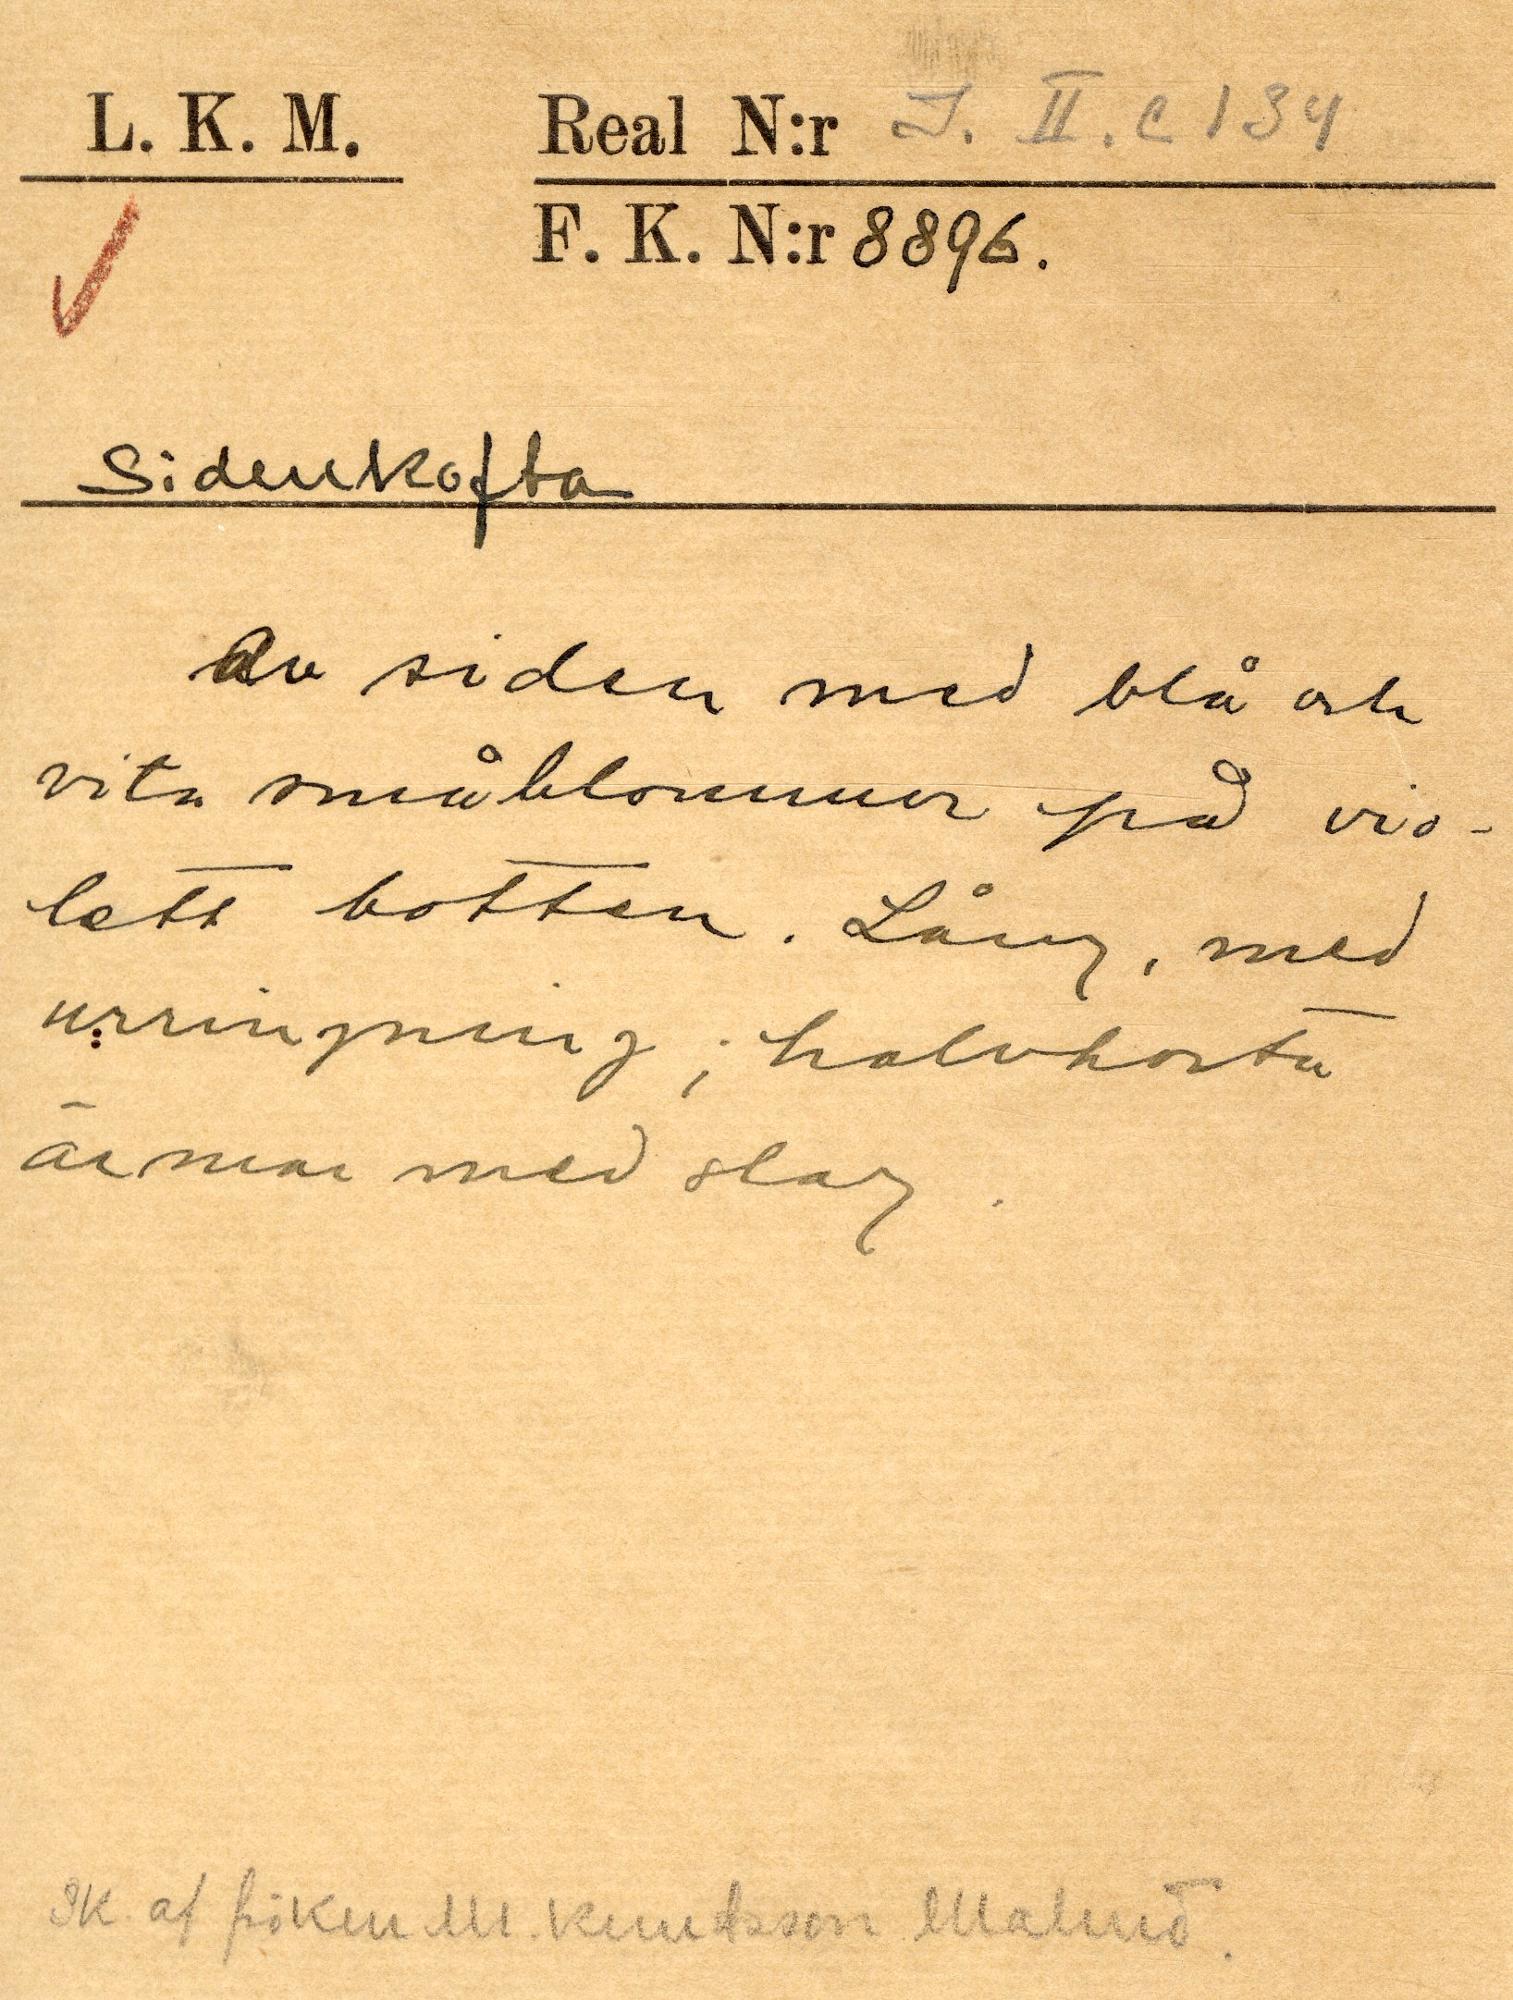 L. K. M.
Real N:r I. II. c 134
F. K. N:r 8896.
Sidenkofta
Av siden med blå och
vita småblommor på vio-
lett botten. Lång, med
urringning; halvkorta
ärmar med slag.
Sk. af fröken M. Knudsson Malmö.